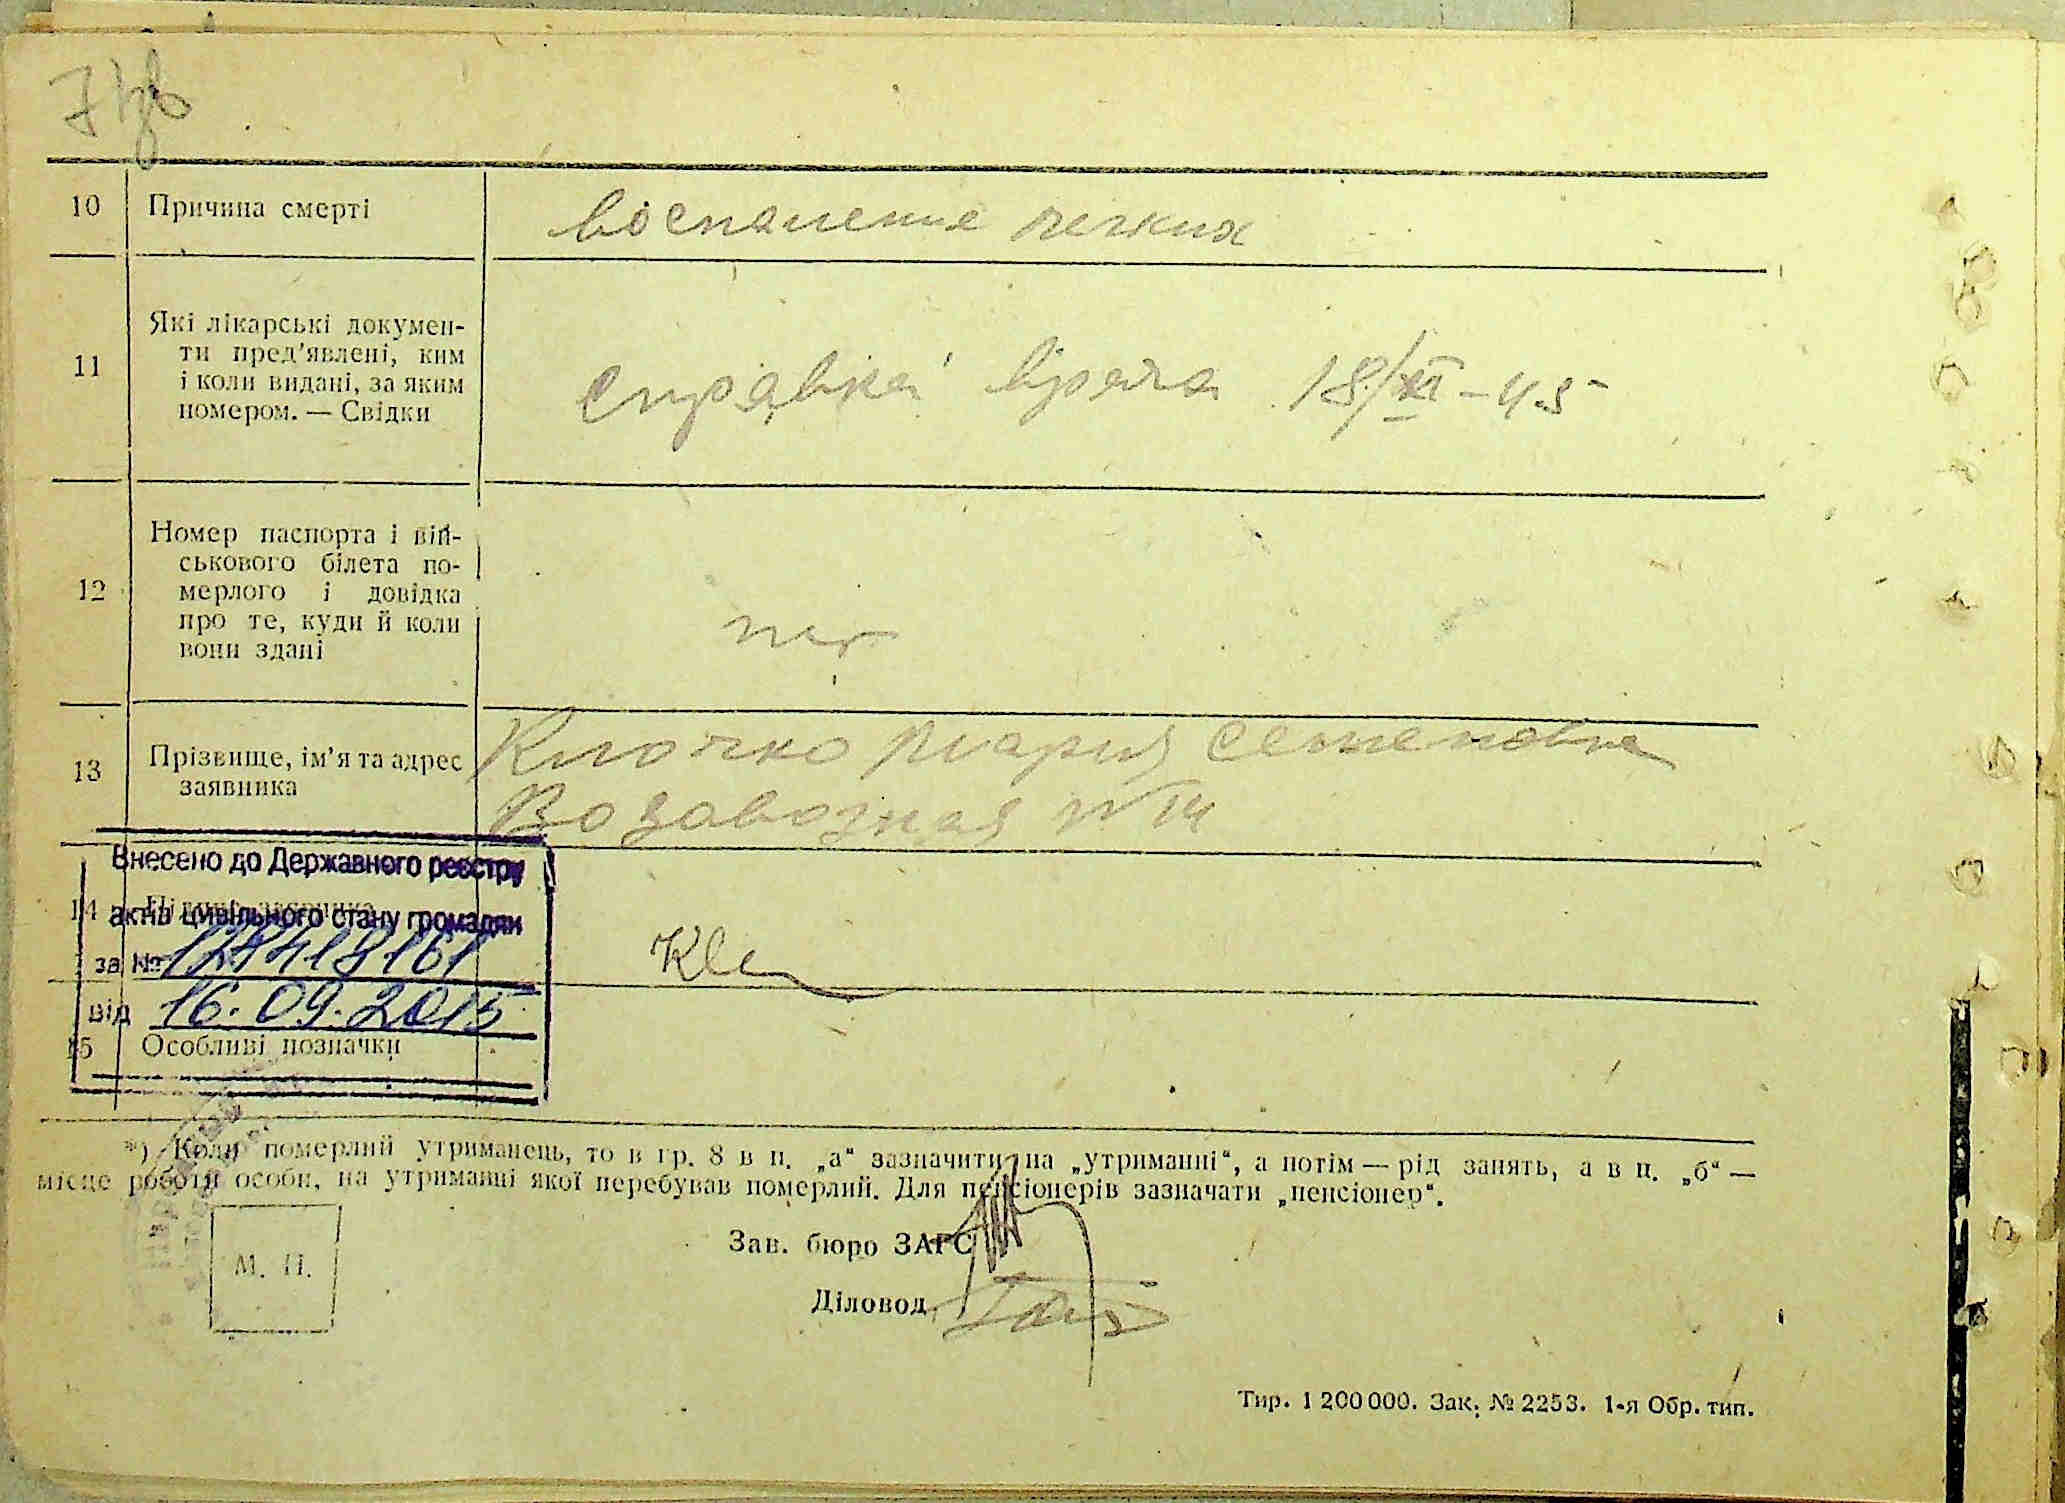 10 Причина смерті воспаление легких
11 Які лікарські докумен-
ти пред'явлені, ким
і коли видані, за яким
номером. — Свідки
справка врача 18/XI-45
12 Номер паспорта і вій-
ськового білета по-
мерлого і довідка
про те, куди й коли
вони здані
нет
13 Прізвище, ім'я та адрес
заявника
Клочко Мария Семеновна
№ 14
Внесено до Державного реєстру
14
актів цивільного стану громадян
за №
від 16.09.2015
15 Особливі позначки
*) Коли померлий утриманець, то в гр. 8 в п. „а“ зазначити на „утриманні“, а потім — рід занять, а в п. „б“ —
місце роботи особи, на утриманні якої перебував померлий. Для пенсіонерів зазначати „пенсіонер“.
М. П.
Зав. бюро ЗАГС
Діловод
Тир. 1 200 000. Зак. № 2253. 1-я Обр. тип.